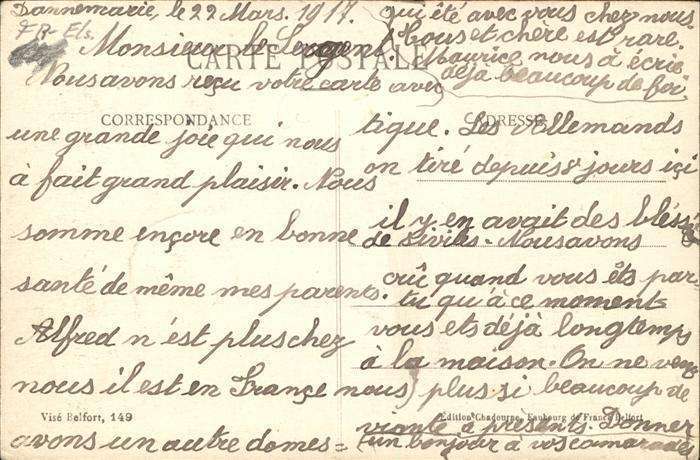 Dannemarie, le 22 Mars. 1917.
FR-Els.
Monsieur le Sergent!
CARTE POSTALE
Nous avons reçu votre carte avec
CORRESPONDANCE
une grande joie qui nous
à fait grand plaisir. Nous
somme ençore en bonne
santé de même mes parents.
Alfred n'est plus chez
nous il est en França nous
Visé Belfort, 149
avons un autre domes=
ADRESSE
tique. Les Allemands
on tiré depuis 8 jours içi
il y en avait des bléss
de siviles. Nous avons
crû quand vous êts par
tu qu'à ce moments
vous ets déjà longtemps
à la maison. On ne ven
plus si beaucoup de
Edition Chadourne, Faubourg de France Belfort
viante à présents. Donner
un bonjour à vos camarades
qui été avec vous chez nous
Tous et chère est rare.
Maurice nous à écrie
déjà beaucoup de foi